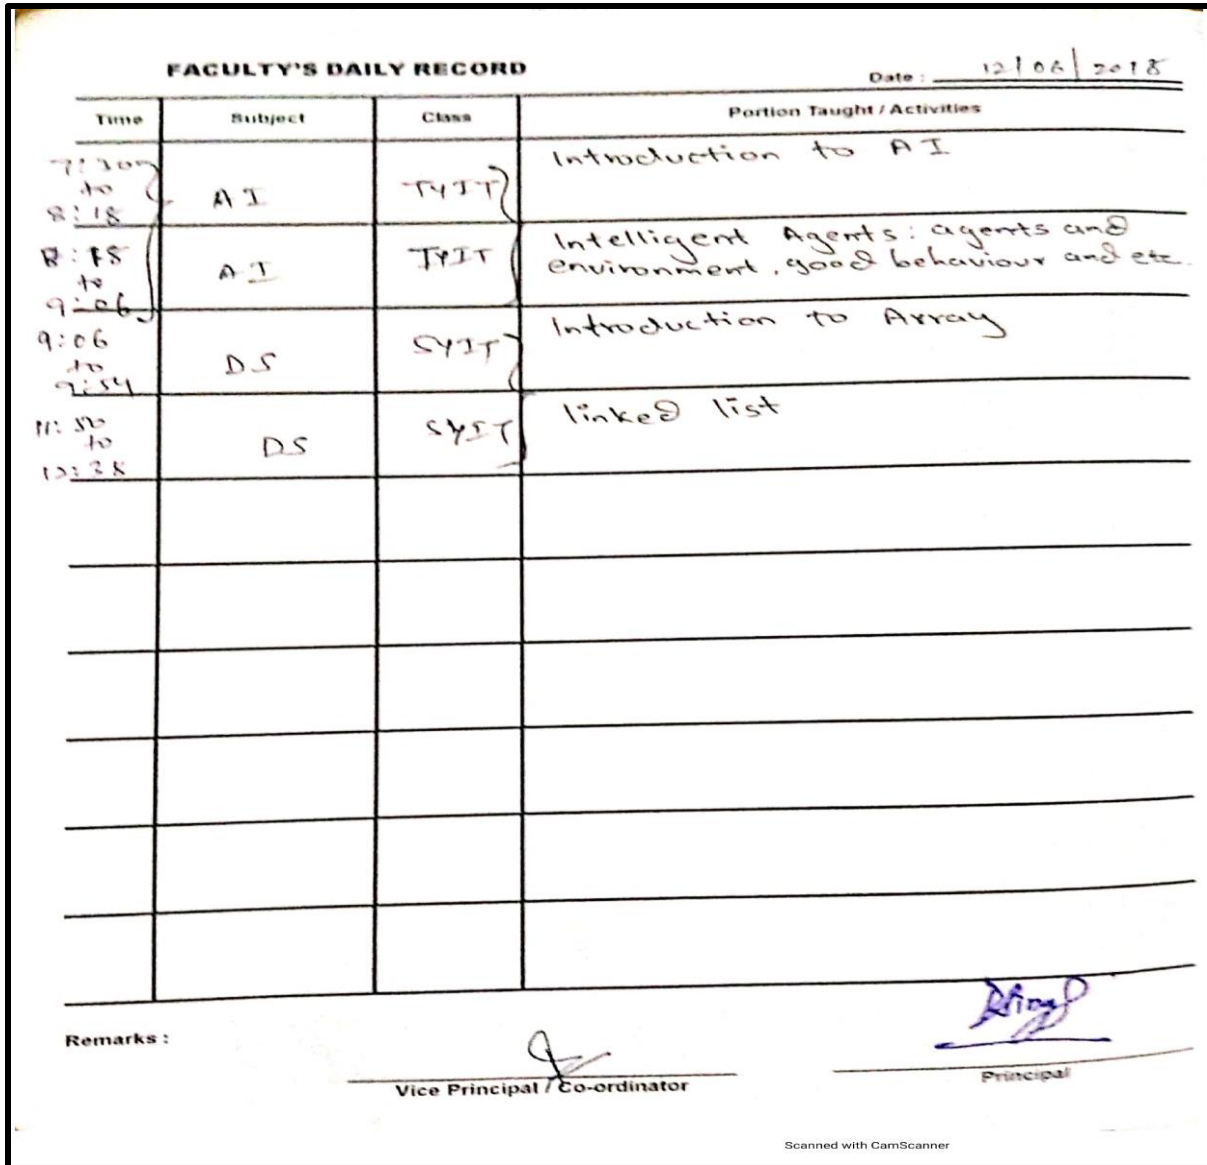 FACULTY'S DAILY RECORD
Date : 12/06/2018
Time Subject Class Portion Taught / Activities
7:30 to 8:18 AI TYIT Introduction to AI
8:18 to 9:06 AI TYIT Intelligent Agents: agents and
environment, good behaviour and etc.
9:06 to 9:54 DS SYIT Introduction to Array
11:50 to 12:38 DS SYIT linked list
Remarks :
Vice Principal / Co-ordinator
Principal
Scanned with CamScanner